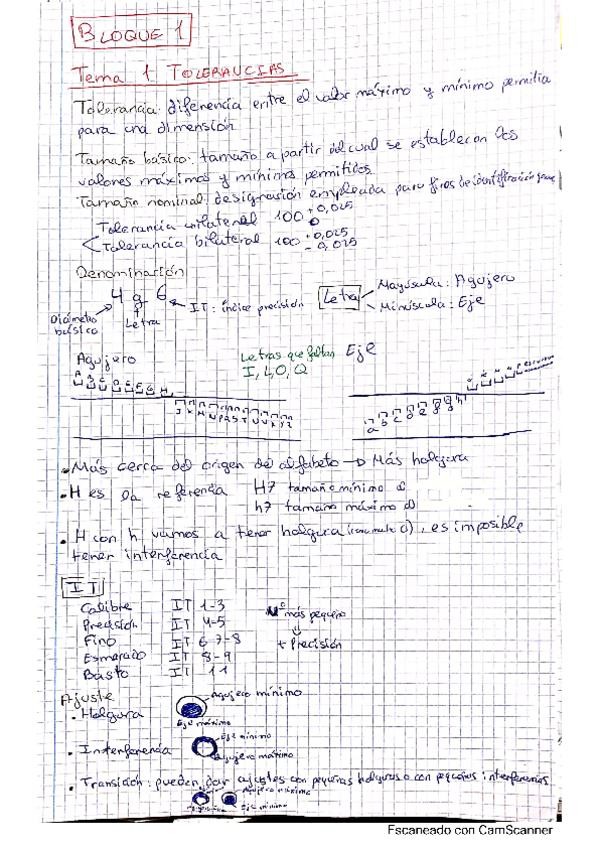 BLOQUE 1
Tema 1 TOLERANCIAS
Tolerancia: diferencia entre el valor máximo y mínimo permitia
para una dimensión
Tamaño básico: tamaño a partir del cual se establecen los
valores máximos y mínimos permitidos
Tamaño nominal: designación empleada para fines de identificación
Tolerancia unilateral 100 +0,025
0
Tolerancia bilateral 100 +0,025
-0,025
Denominación
4 g 6
IT: índice precisión
Diámetro básico
Letra
Letra
Mayúscula: Agujero
Minúscula: Eje
Agujero
Letras que faltan
I, L, O, Q
Eje
• Más cerca del origen del alfabeto → Más holgura
• H es la referencia H7 tamaño mínimo
h7 tamaño máximo
• H con h vamos a tener holgura, es imposible
tener interferencia
IT
Calibre IT 1-3
Precisión IT 4-5
Fino IT 6-7-8
Esmerado IT 8-9
Basto IT 11
Nº más pequeño
⇓
+ Precisión
Ajuste
• Holgura
Agujero mínimo
Eje máximo
• Interferencia
Eje mínimo
Agujero máximo
• Transición: pueden dar ajustes con pequeñas holguras o con pequeñas interferencias
Agujero máximo
Eje mínimo
Escaneado con CamScanner